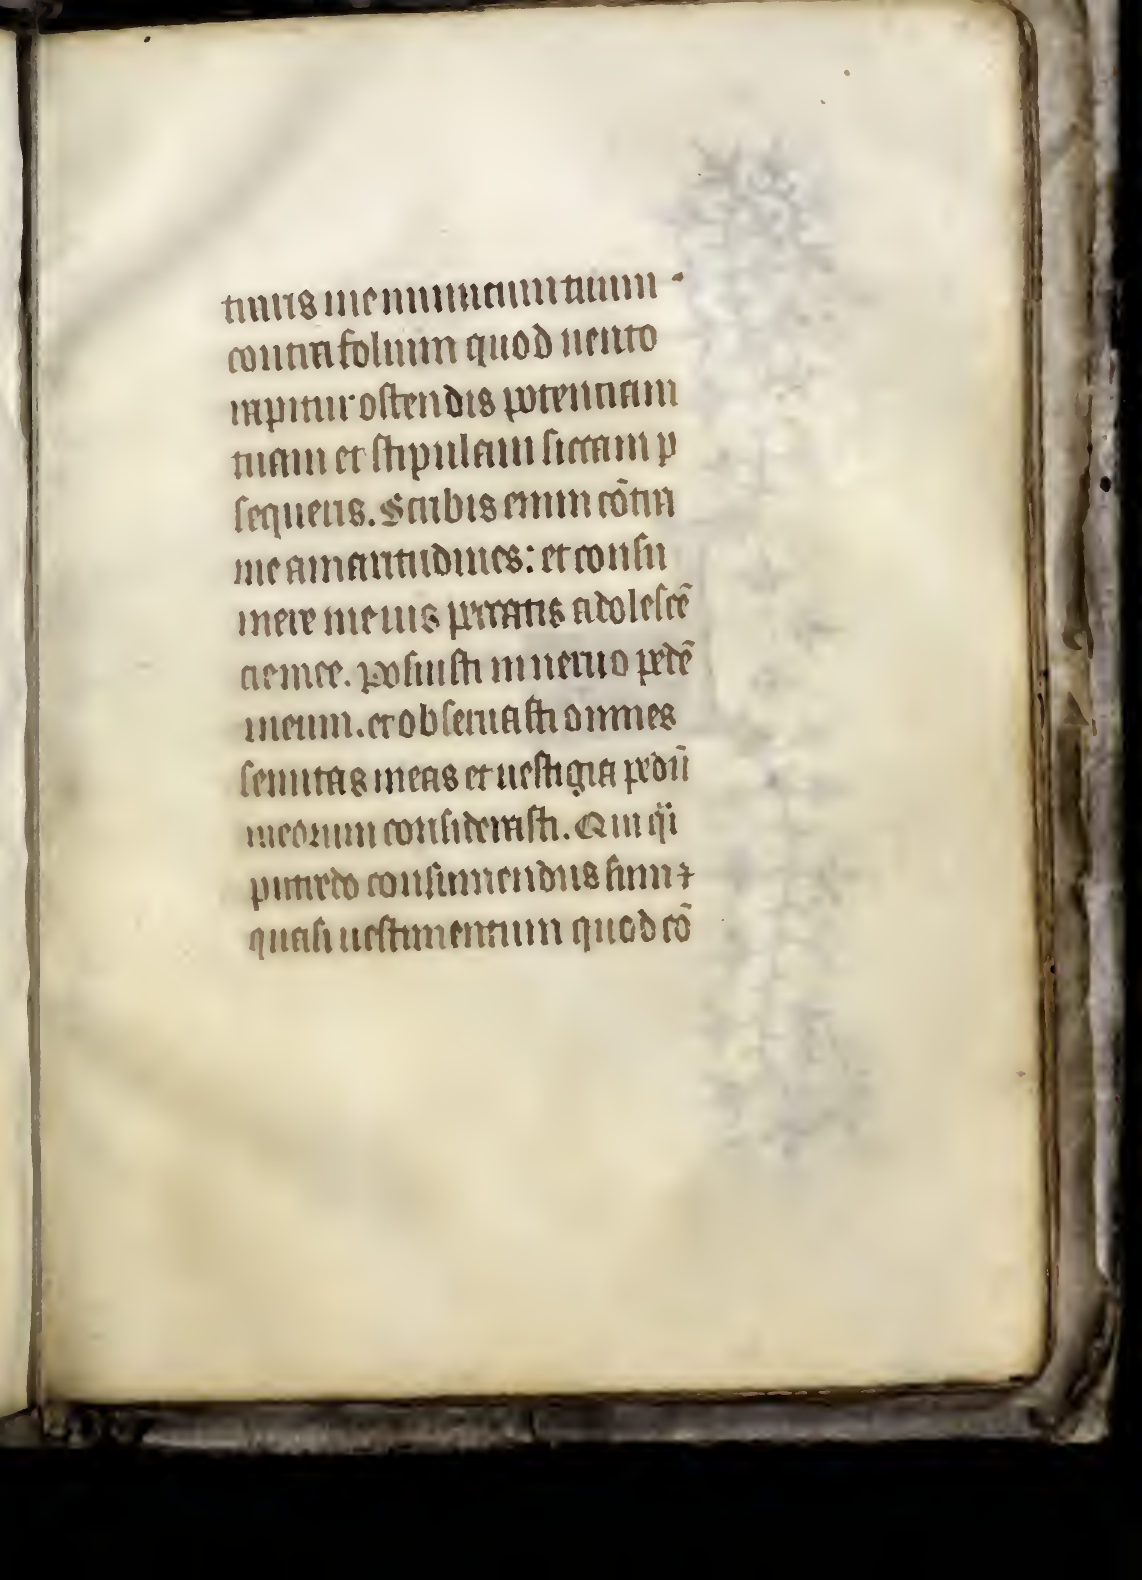 traris me inimicum tuum
contra folium quod uento
rapitur ostendis potentiam
tuam et stipulam siccam p
sequeris. Scribis enim cōtra
me amaritudines: et consu
mere me uis peccatis adolescē
tie mee. posuisti in neruo pedē
meum. et obseruasti omnes
semitas meas et uestigia pedū
meorum considerasti. Qui qͥ
putredo consumendus sum ⁊
quasi uestimentum quod cō